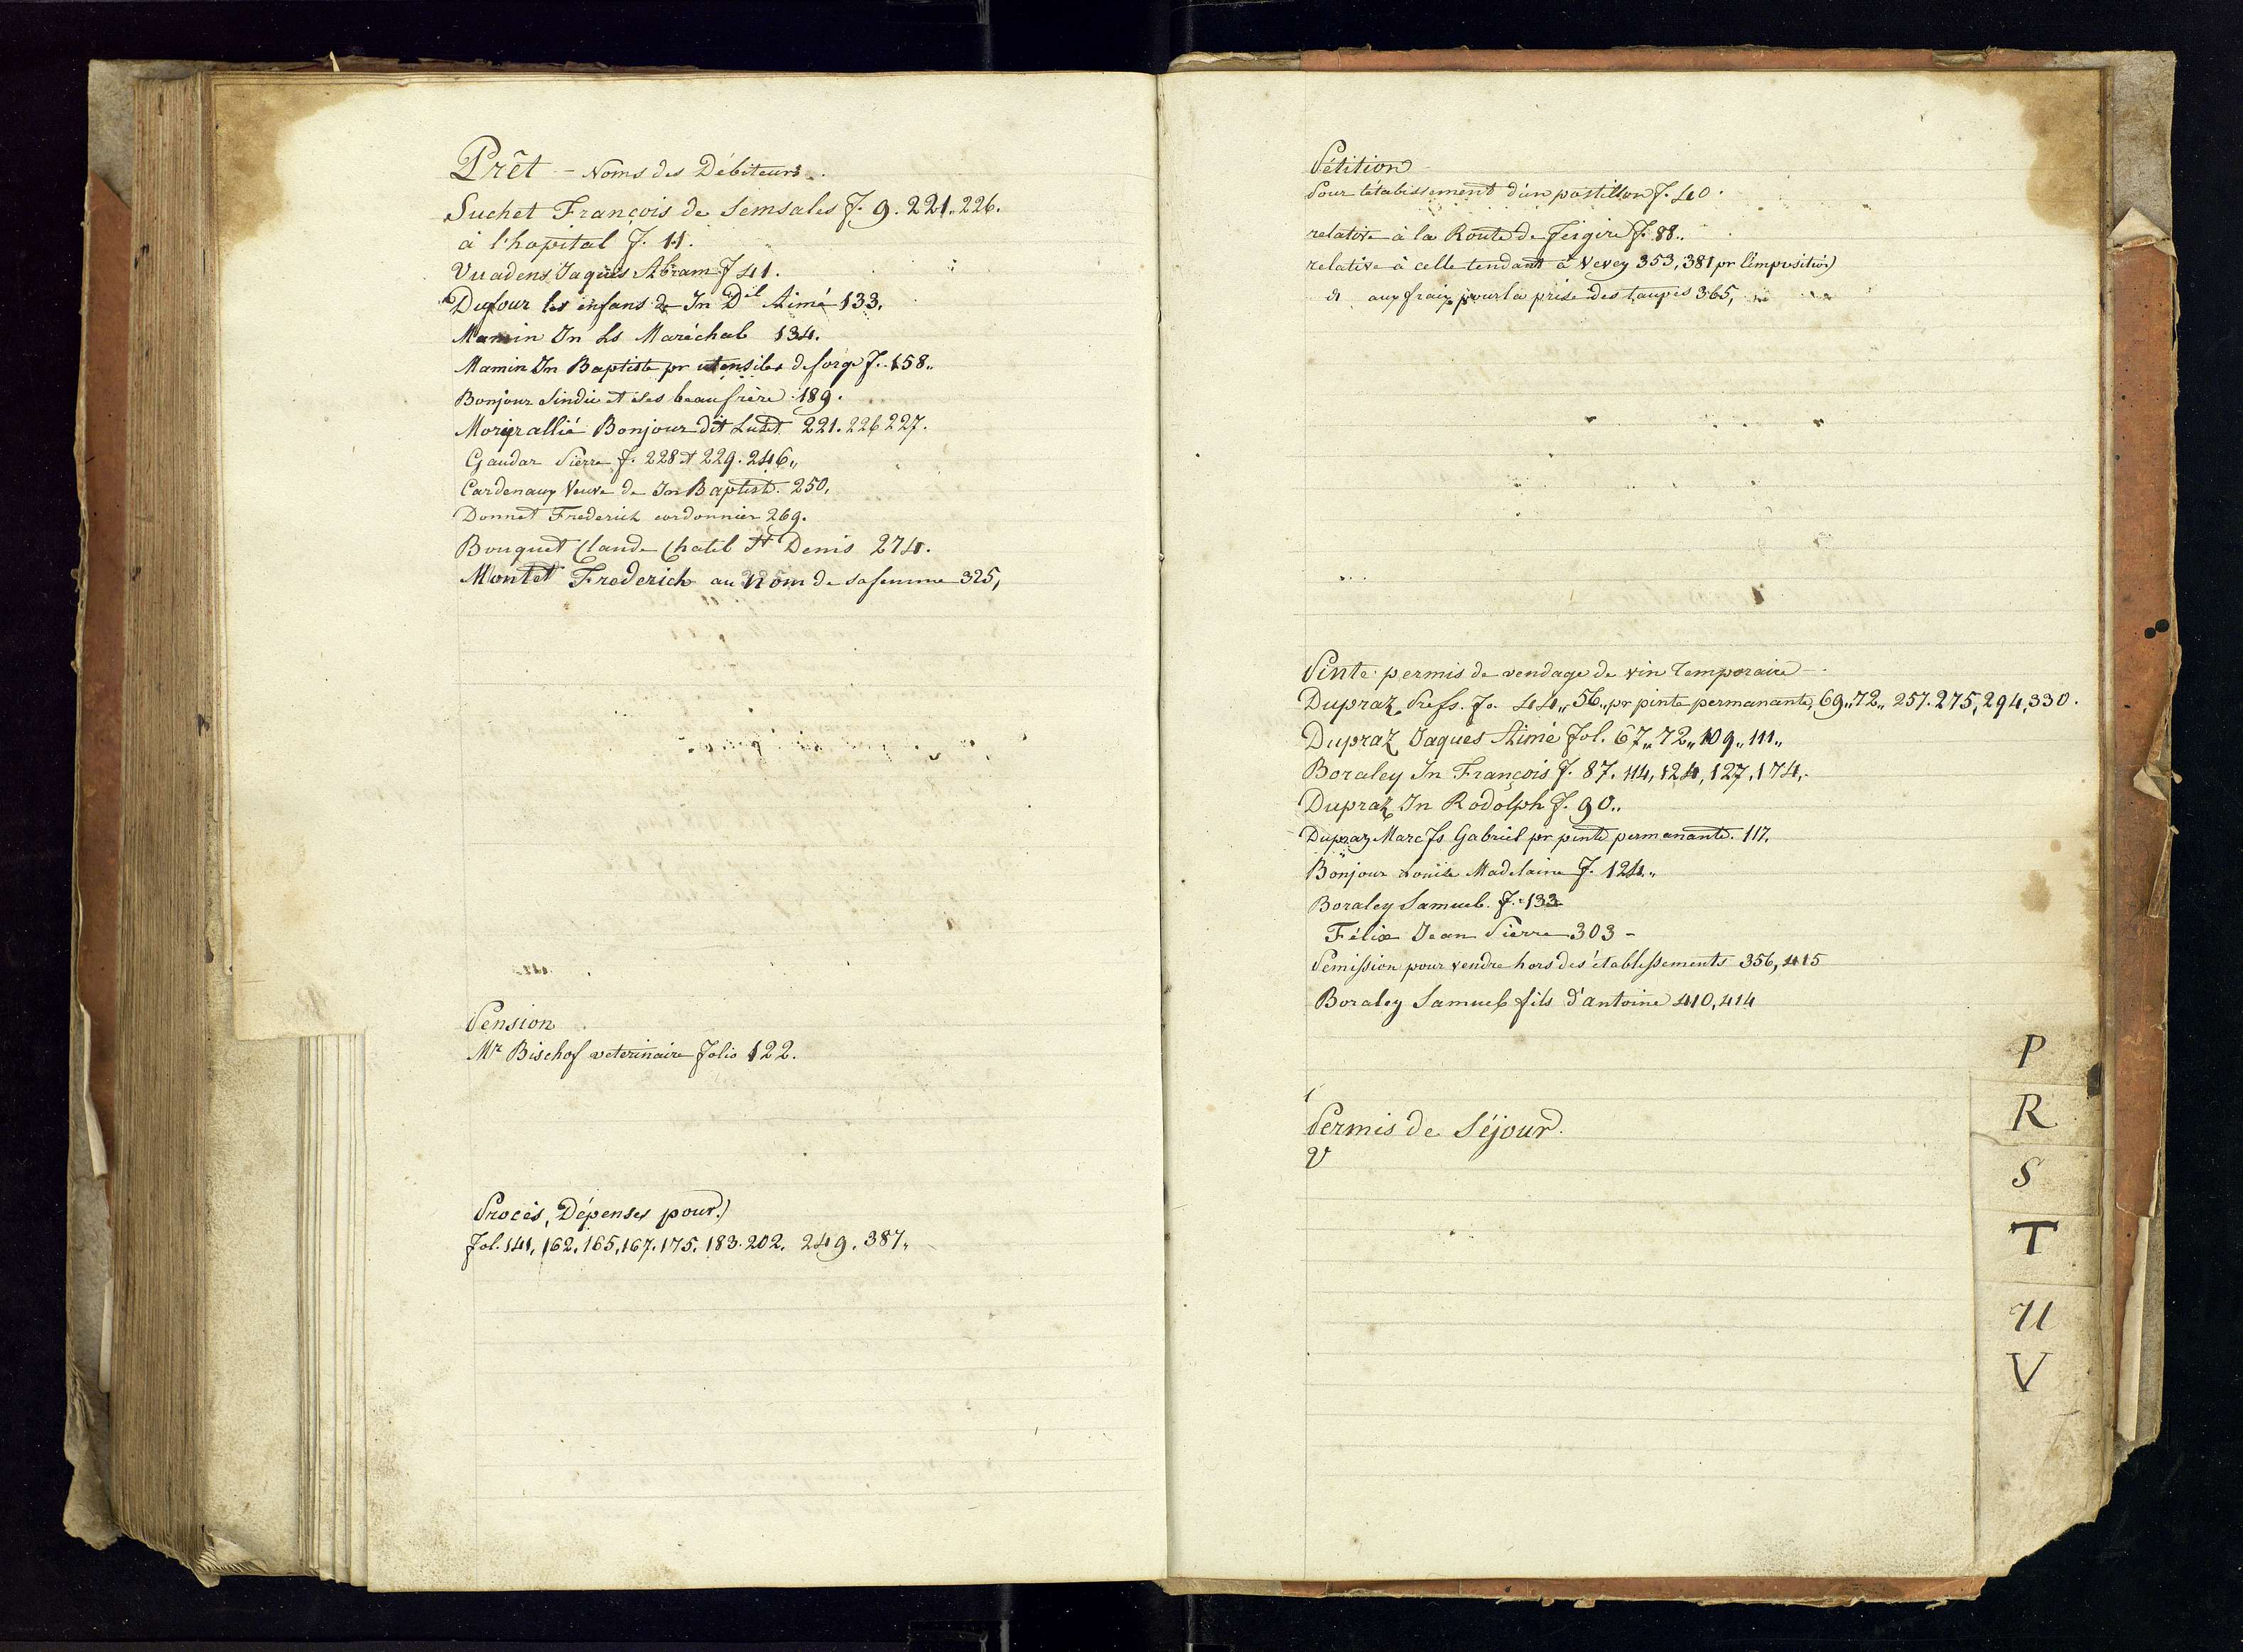 Prêt - Noms des Débiteurs.
Suchet François de Semsales f. 9. 221. 226.
à l'hopital f. 11.
Vuadens Jaques Abram f 41.
Dufour les enfans de Jn Dl Aimé 133.
Mamin Jn Ls Maréchal 134.
Mamin Jn Baptiste pr utensiles de forge f. 158.
Bonjour Sindic et ses beaufrère 189.
allié Bonjour dit 221. 226 227.
Gaudar Pierre f. 228 et 229. 246.
Cardenaux Veuve de Jn Baptist. 250,
Donnet Frederich cordonnier 269.
Bouquet Claude Chatel St Denis 274.
Montet Frederich au nom de sa femme 325,
Pension
Mr Bischof veterinaire folio 122.
Procès, Dépenses pour)
fol. 141, 162, 165, 167. 175, 183. 202. 249. 387.
Pétition
Pour l'étabissement d'un postillon f. 40.
relative à la Route de Feigire f. 88.
relative à celle tendant à Vevey 353, 381 pr l'imposition)
d aux fraix pour la prise des taupes 365,
Pinte permis de vendage de vin temporaire
Dupraz Prefs. fo 44, 56, pr pinte permanante, 69, 72, 257. 275, 294, 330.
Dupraz Jaques Aimé fol. 67, 72, 109, 111,
Boraley Jn François f. 87. 114, 124, 127, 174,
Dupraz Jn Rodolph f. 90.
Dupraz Marc fs Gabriel pr pinte permanante. 117.
Bonjour Louise Madelaine f. 124.
Boraley Samuel. f. 133
Félix Jean Pierre 303 -
Pemission pour vendre hors des établissements 356, 415
Boraley Samuel fils d'antoine 410, 414
Permis de Séjour.
V
P
R
S
T
U
V